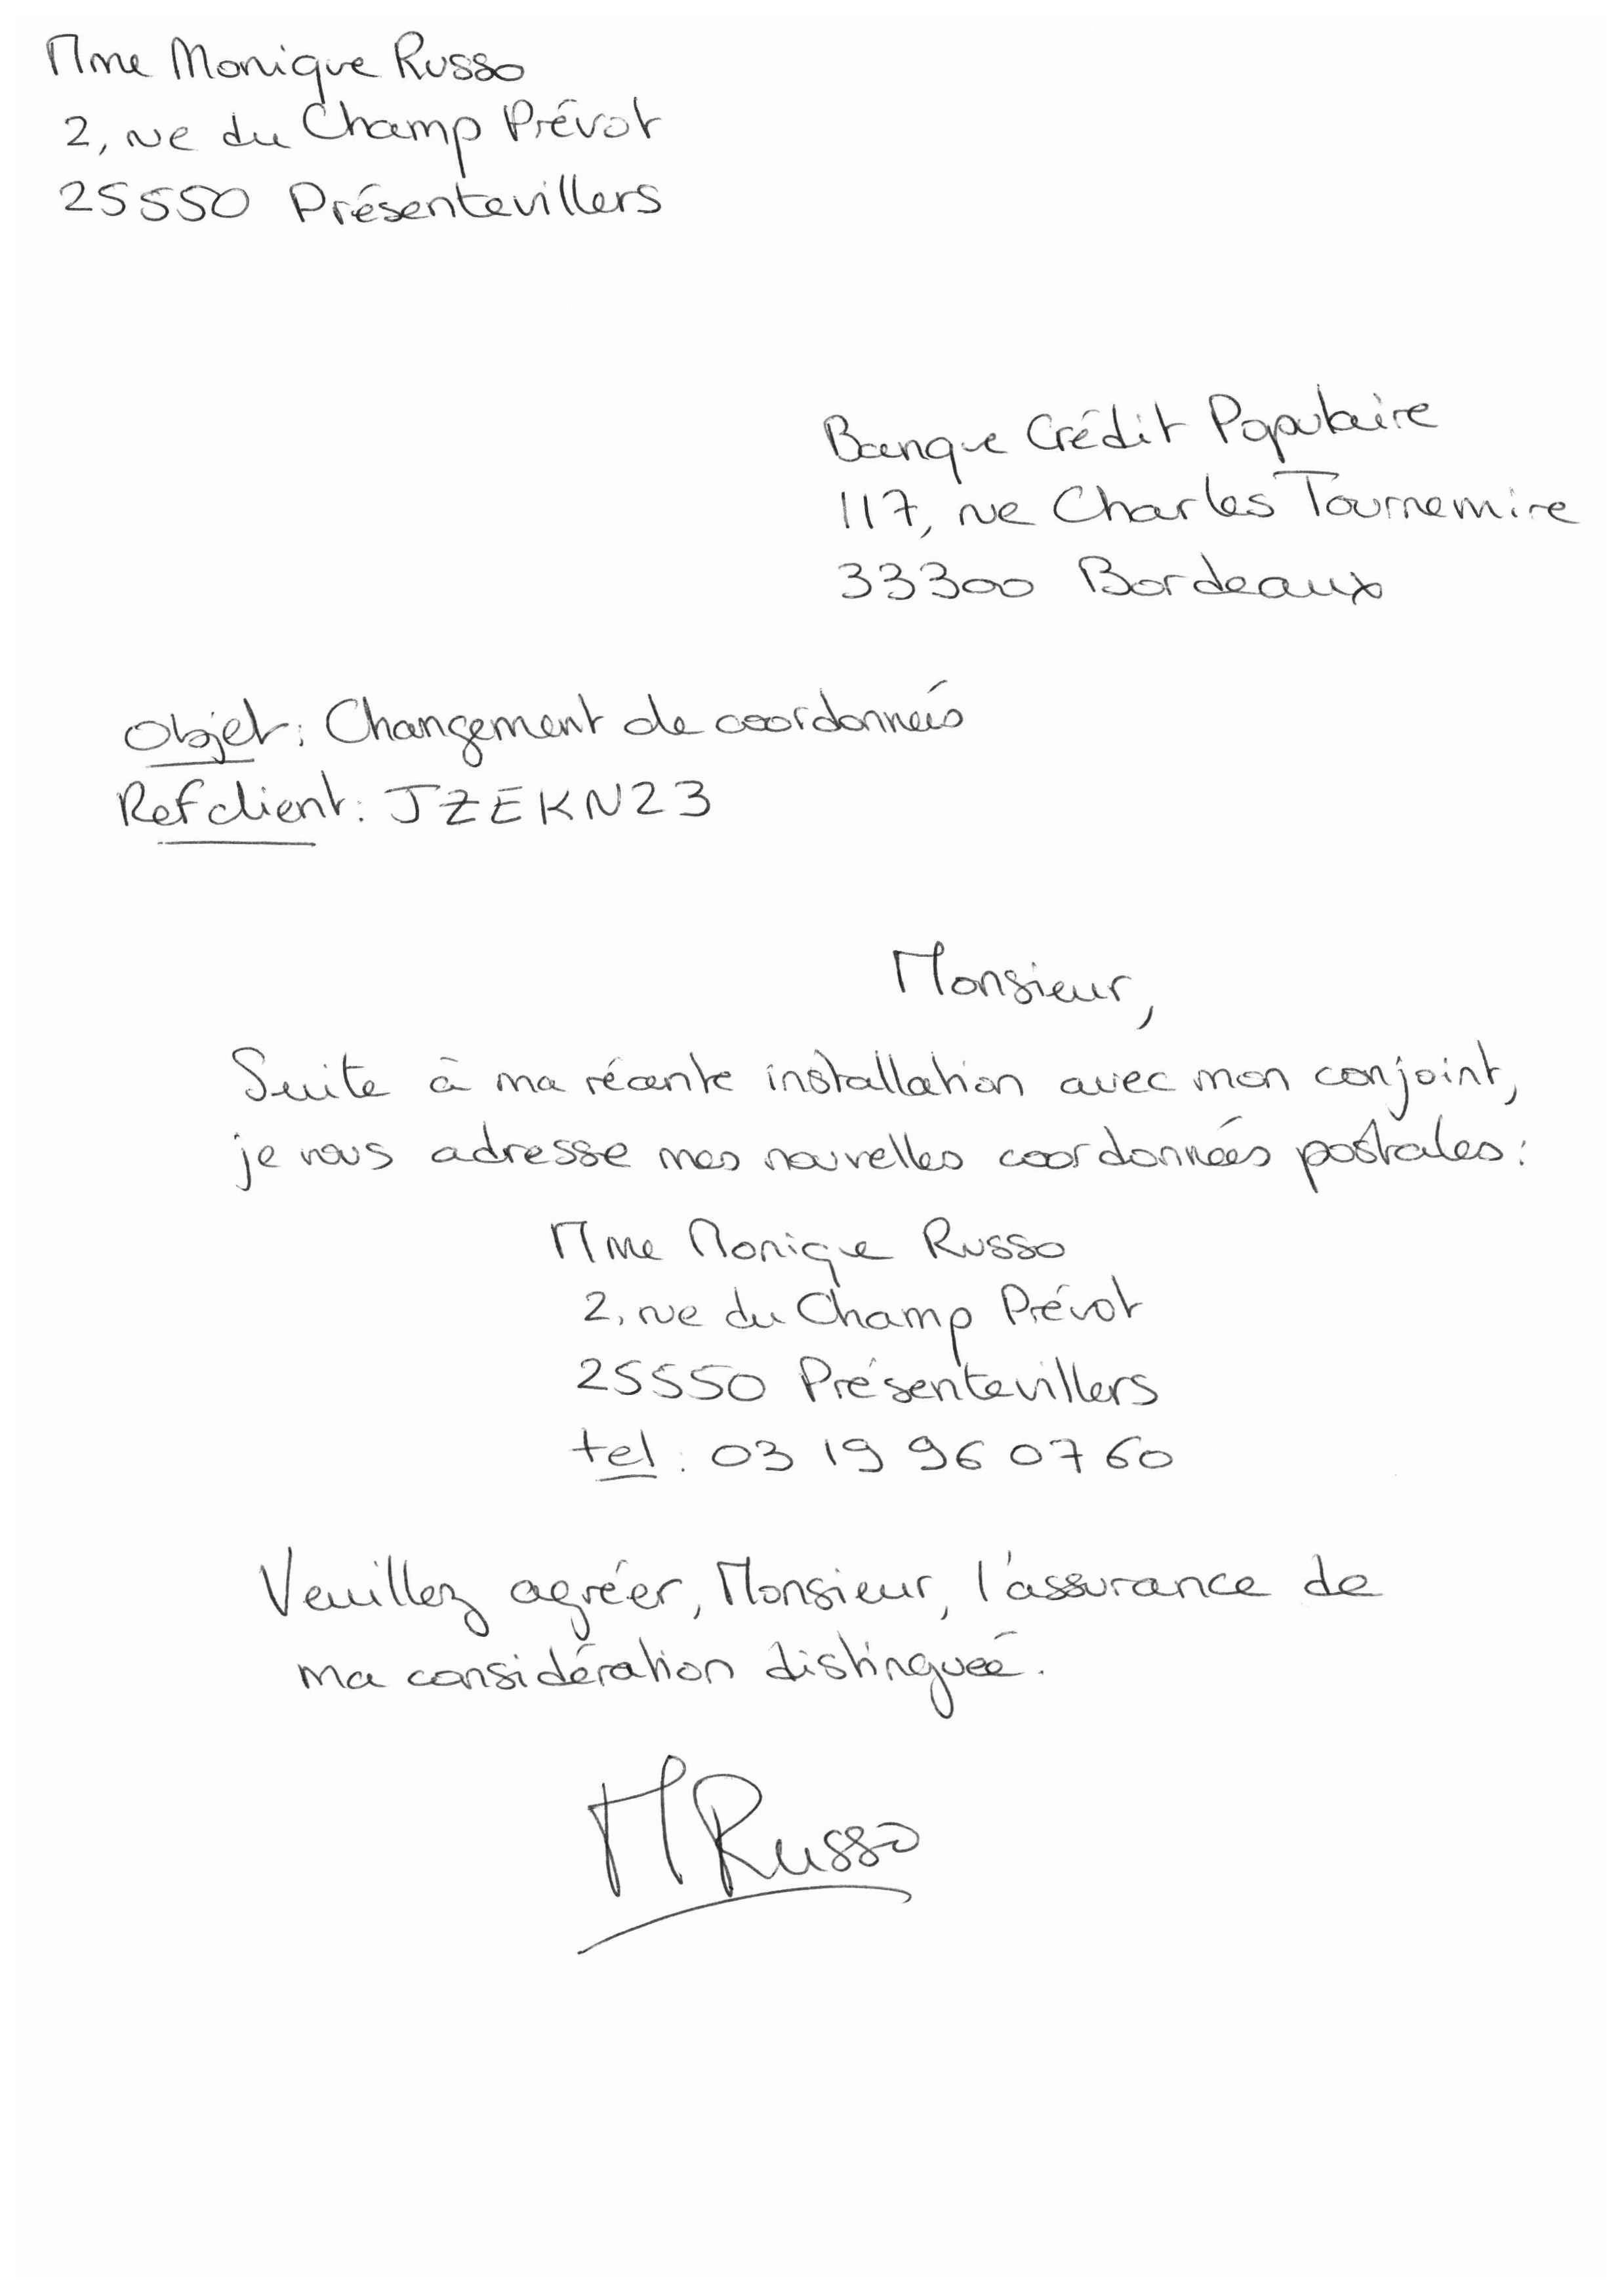 Mme Monique Russo
2, rue du Champ Prévot
25550 Présentevillers
Banque Crédit Populaire
117, rue Charles Tournemire
33300 Bordeaux
Objet : Changement de coordonnées
Ref client : JZEKN23
Monsieur,
Suite à ma récente installation avec mon conjoint,
je vous adresse mes nouvelles coordonnées postales :
Mme Monique Russo
2, rue du Champ Prévot
25550 Présentevillers
tel : 03 19 96 07 60
Veuillez agréer, Monsieur, l'assurance de
ma considération distinguée.
MRusso